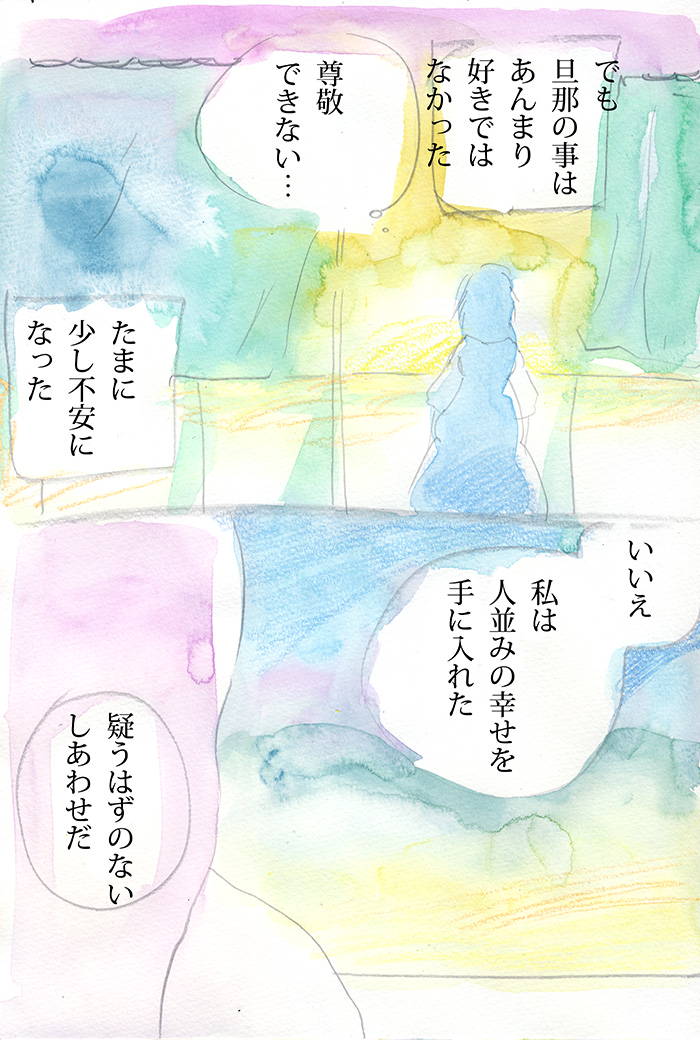 でも
旦那の事は
あんまり
好きでは
なかった
尊敬
できない…
たまに
少し不安に
なった
いいえ
私は
人並みの幸せを
手に入れた
疑うはずのない
しあわせだ